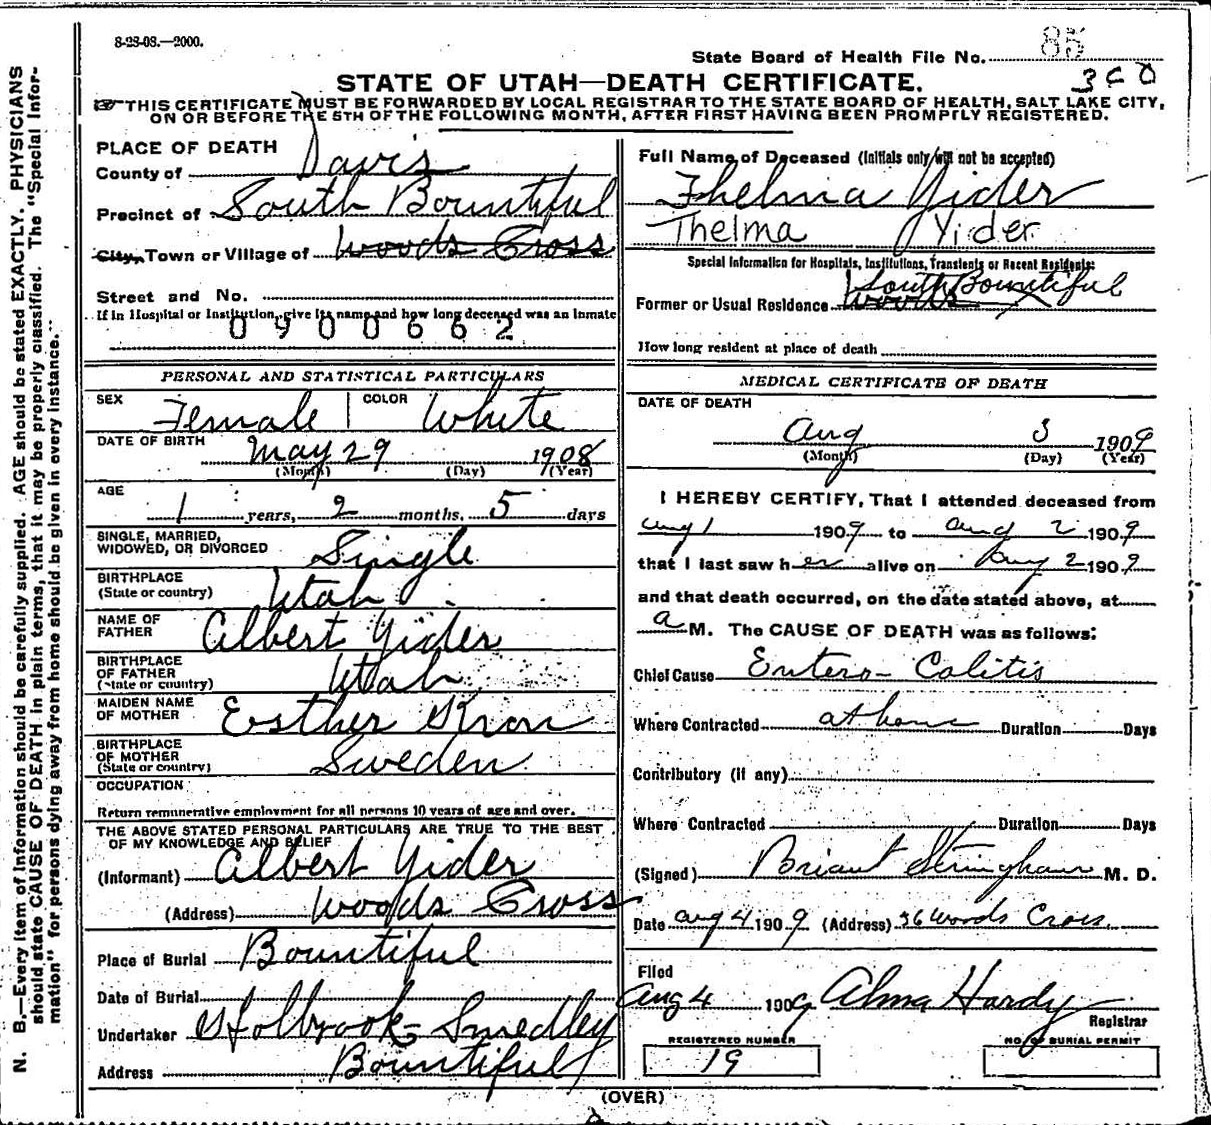 8-28-08.—2000.
State Board of Health File No. 85
STATE OF UTAH—DEATH CERTIFICATE. 360
THIS CERTIFICATE MUST BE FORWARDED BY LOCAL REGISTRAR TO THE STATE BOARD OF HEALTH, SALT LAKE CITY,
ON OR BEFORE THE 5TH OF THE FOLLOWING MONTH, AFTER FIRST HAVING BEEN PROMPTLY REGISTERED.
PLACE OF DEATH
County of Davis
Precinct of South Bountiful
City, Town or Village of Woods Cross
Street and No.
If in Hospital or Institution, give its name and how long deceased was an inmate
0900662
PERSONAL AND STATISTICAL PARTICULARS
SEX Female COLOR White
DATE OF BIRTH May 29 1908
(Month) (Day) (Year)
AGE
1 years, 2 months, 5 days
SINGLE, MARRIED,
WIDOWED, OR DIVORCED Single
BIRTHPLACE
(State or country) Utah
NAME OF
FATHER Albert Yider
BIRTHPLACE
OF FATHER
(State or country) Utah
MAIDEN NAME
OF MOTHER Esther Kron
BIRTHPLACE
OF MOTHER
(State or country) Sweden
OCCUPATION
Return remunerative employment for all persons 10 years of age and over.
THE ABOVE STATED PERSONAL PARTICULARS ARE TRUE TO THE BEST
OF MY KNOWLEDGE AND BELIEF
(Informant) Albert Yider
(Address) Woods Cross
Place of Burial Bountiful
Date of Burial
Undertaker Holbrook-Smedley
Address Bountiful
Full Name of Deceased (Initials only will not be accepted)
Thelma Yider
Thelma Yider
Special Information for Hospitals, Institutions, Transients or Recent Residents:
South Bountiful
Former or Usual Residence Woods
How long resident at place of death
MEDICAL CERTIFICATE OF DEATH
DATE OF DEATH
Aug 3 1909
(Month) (Day) (Year)
I HEREBY CERTIFY, That I attended deceased from
Aug 1 1909 to Aug 2 1909
that I last saw her alive on Aug 2 1909
and that death occurred, on the date stated above, at
a M. The CAUSE OF DEATH was as follows:
Chief Cause Entero-Colitis
Where Contracted at home Duration Days
Contributory (if any)
Where Contracted Duration Days
(Signed) Briant Stringham M. D.
Date Aug 4 1909 (Address) Woods Cross
Filed
Aug 4 1909 Alma Hardy
Registrar
REGISTERED NUMBER
19
NO. OF BURIAL PERMIT
(OVER)
N. B.—Every item of information should be carefully supplied. AGE should be stated EXACTLY. PHYSICIANS
should state CAUSE OF DEATH in plain terms, that it may be properly classified. The "Special Infor-
mation" for persons dying away from home should be given in every instance.